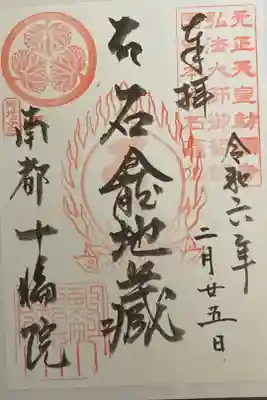 元正天皇勅願
弘法大師御
奉拝
令和六年
二月廿五日
石龕地蔵
南都十輪院